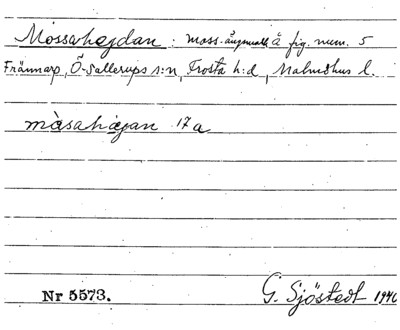 Mossahojdan : moss-ångsmark å fig. num. 5
Frännarp, Ö-Sallerups s:n, Frosta h:d, Malmöhus l.
måsahåjan 17 a
Nr 5573. G. Sjöstedt 1946